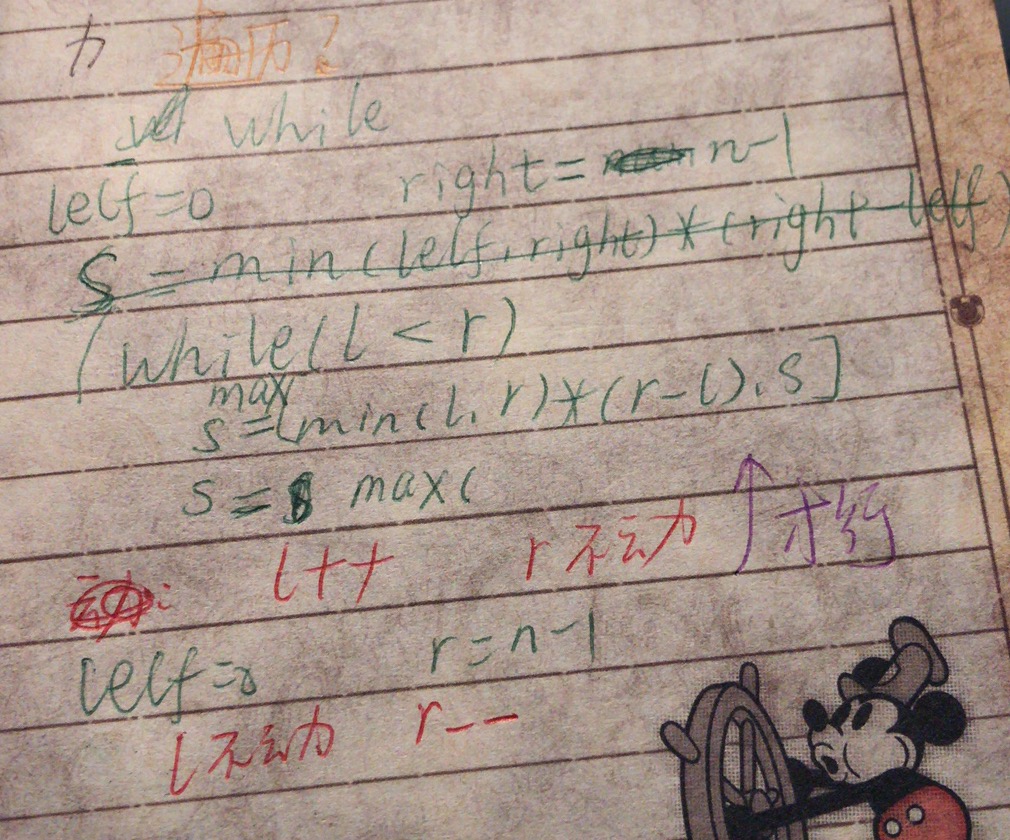 力 遍历?
while
lelf=0 right= n-1
S = min(lelf,right)*(right-lelf)
while(l < r)
max
s=(min(l,r)*(r-l),s]
s = max(
l++ r不动 ↑
lelf=0 r=n-1
l不动 r--